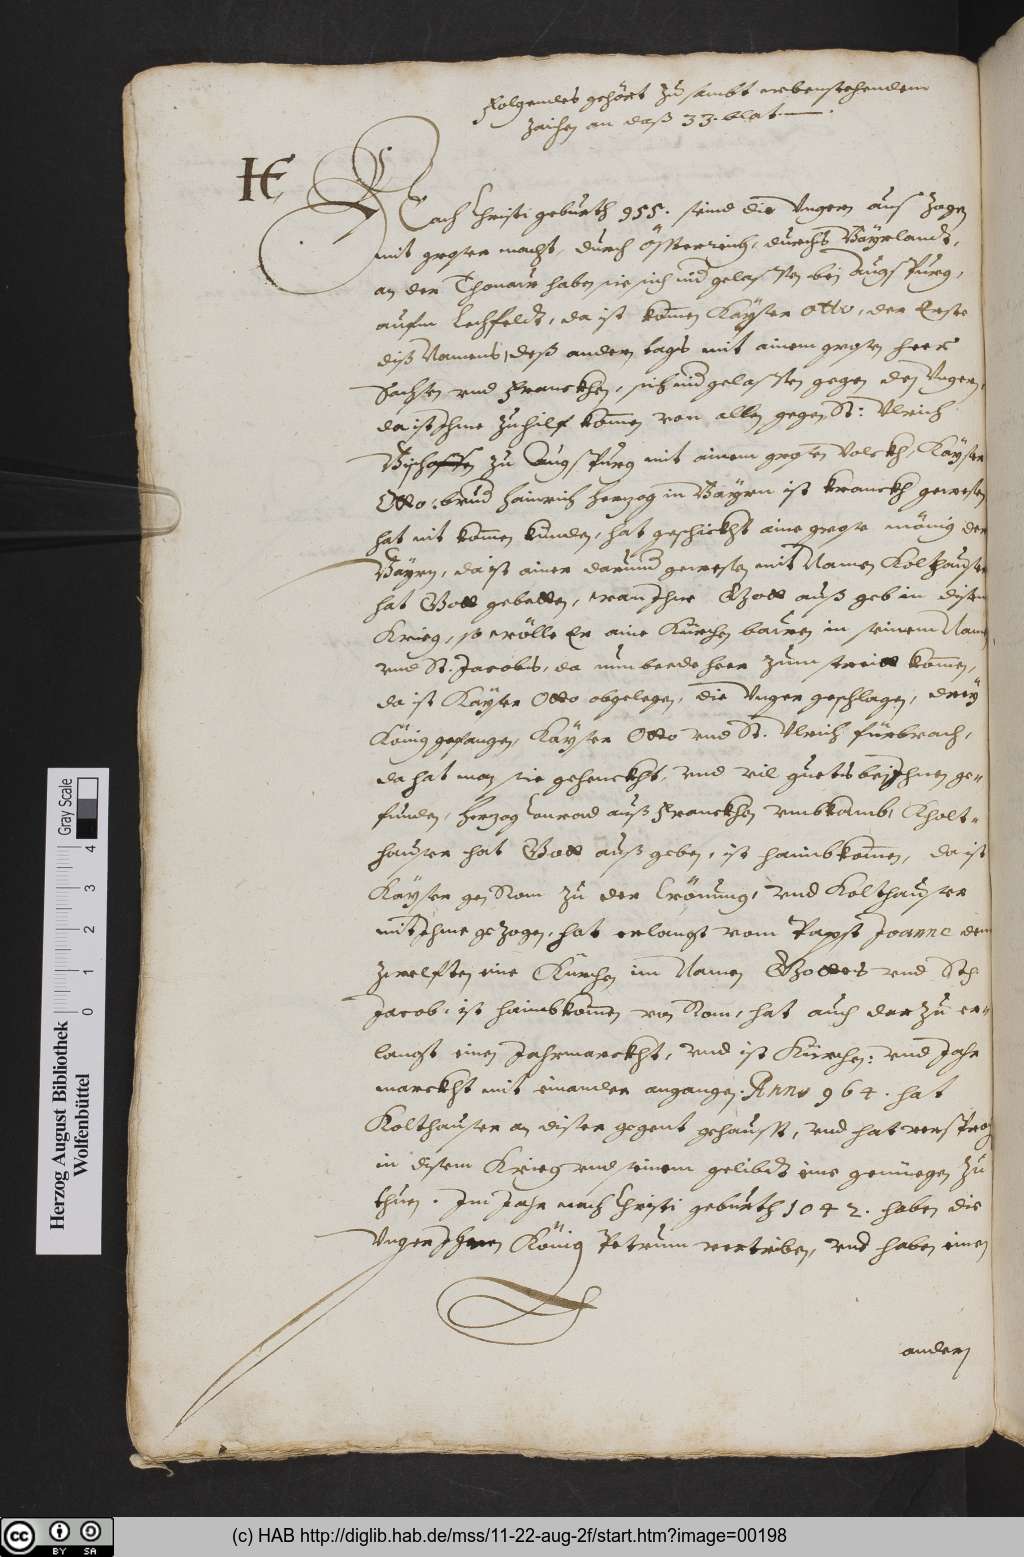 Folgendes gehört zu sambt nebenstehendem
zaichen an daß 33. blat.
HE
Nach Christi geburth 955. seind die Ungern aus zogen
mit groser macht, durch Össterreich, durchs Bayrlandt,
an der Thonaw haben sie sich nid gelassen bei Augspurg,
aufm Lechfeldt, da ist komen Kayser Otto, der Erste
diß Namens, deß andern tags mit ainem grosen heer
Sachsen vnd Franckhen, sich nid gelassen gegen den Ungern,
da ist Ihme zuhilf komen von allen gegen St: Ulrich
Bischoffen zu Augspurg mit ainem grosen Volckh, Kayser
Otto: brud Hainrich Herzog in Bayrn ist kranckh gewesen
hat nit komen künden, hat geschickht aine grose mönig der
Bayrn, da ist ainer darund gewesen mit Namen Kolthauser
hat Gott gebetten, wan Ihne Gott auß geb in disem
Krieg, so wölle Er aine Kürchen bauen in seinem Name
vnd St. Jacobs, da nun beede heer zum streitt komen,
da ist Kayser Otto obgelegen, die Unger geschlagen, drey
König gefangen, Kayser Otto vnd St. Ulrich fürbrach,
da hat man sie gehenckht, vnd vil guets bei Ihnen ge-
funden, Herzog Conrad auß Franckhen umbkamb, Kholt-
hauser hat Gott auß geben, ist haimbkomen, da ist
Kayser gen Rom zu der Crönung, vnd Kolthauser
mit Ihme gezogen, hat erlangt vom Papst Joanne dem
zwelften eine Kürchen im Namen Gottes vnd St:
Jacob, ist haimbkomen von Rom, hat auch darzu er-
langt einen Jahrmarckht, vnd ist Kürchen: vnd Jahr
marckht mit einander angangen. Anno 964. hat
Kolthauser an diser gegent gehaust, vnd hat versproch
in disem Krieg vnd seinem gelibdt ein genüegen zu
thuen. Im Jahr nach Christi geburth 1042. haben die
Unger Ihren König Petrum vertriben, vnd haben einen
andern
Herzog August Bibliothek
Wolfenbüttel
0 1 2 3 4
Gray Scale
(c) HAB http://diglib.hab.de/mss/11-22-aug-2f/start.htm?image=00198
cc BY SA